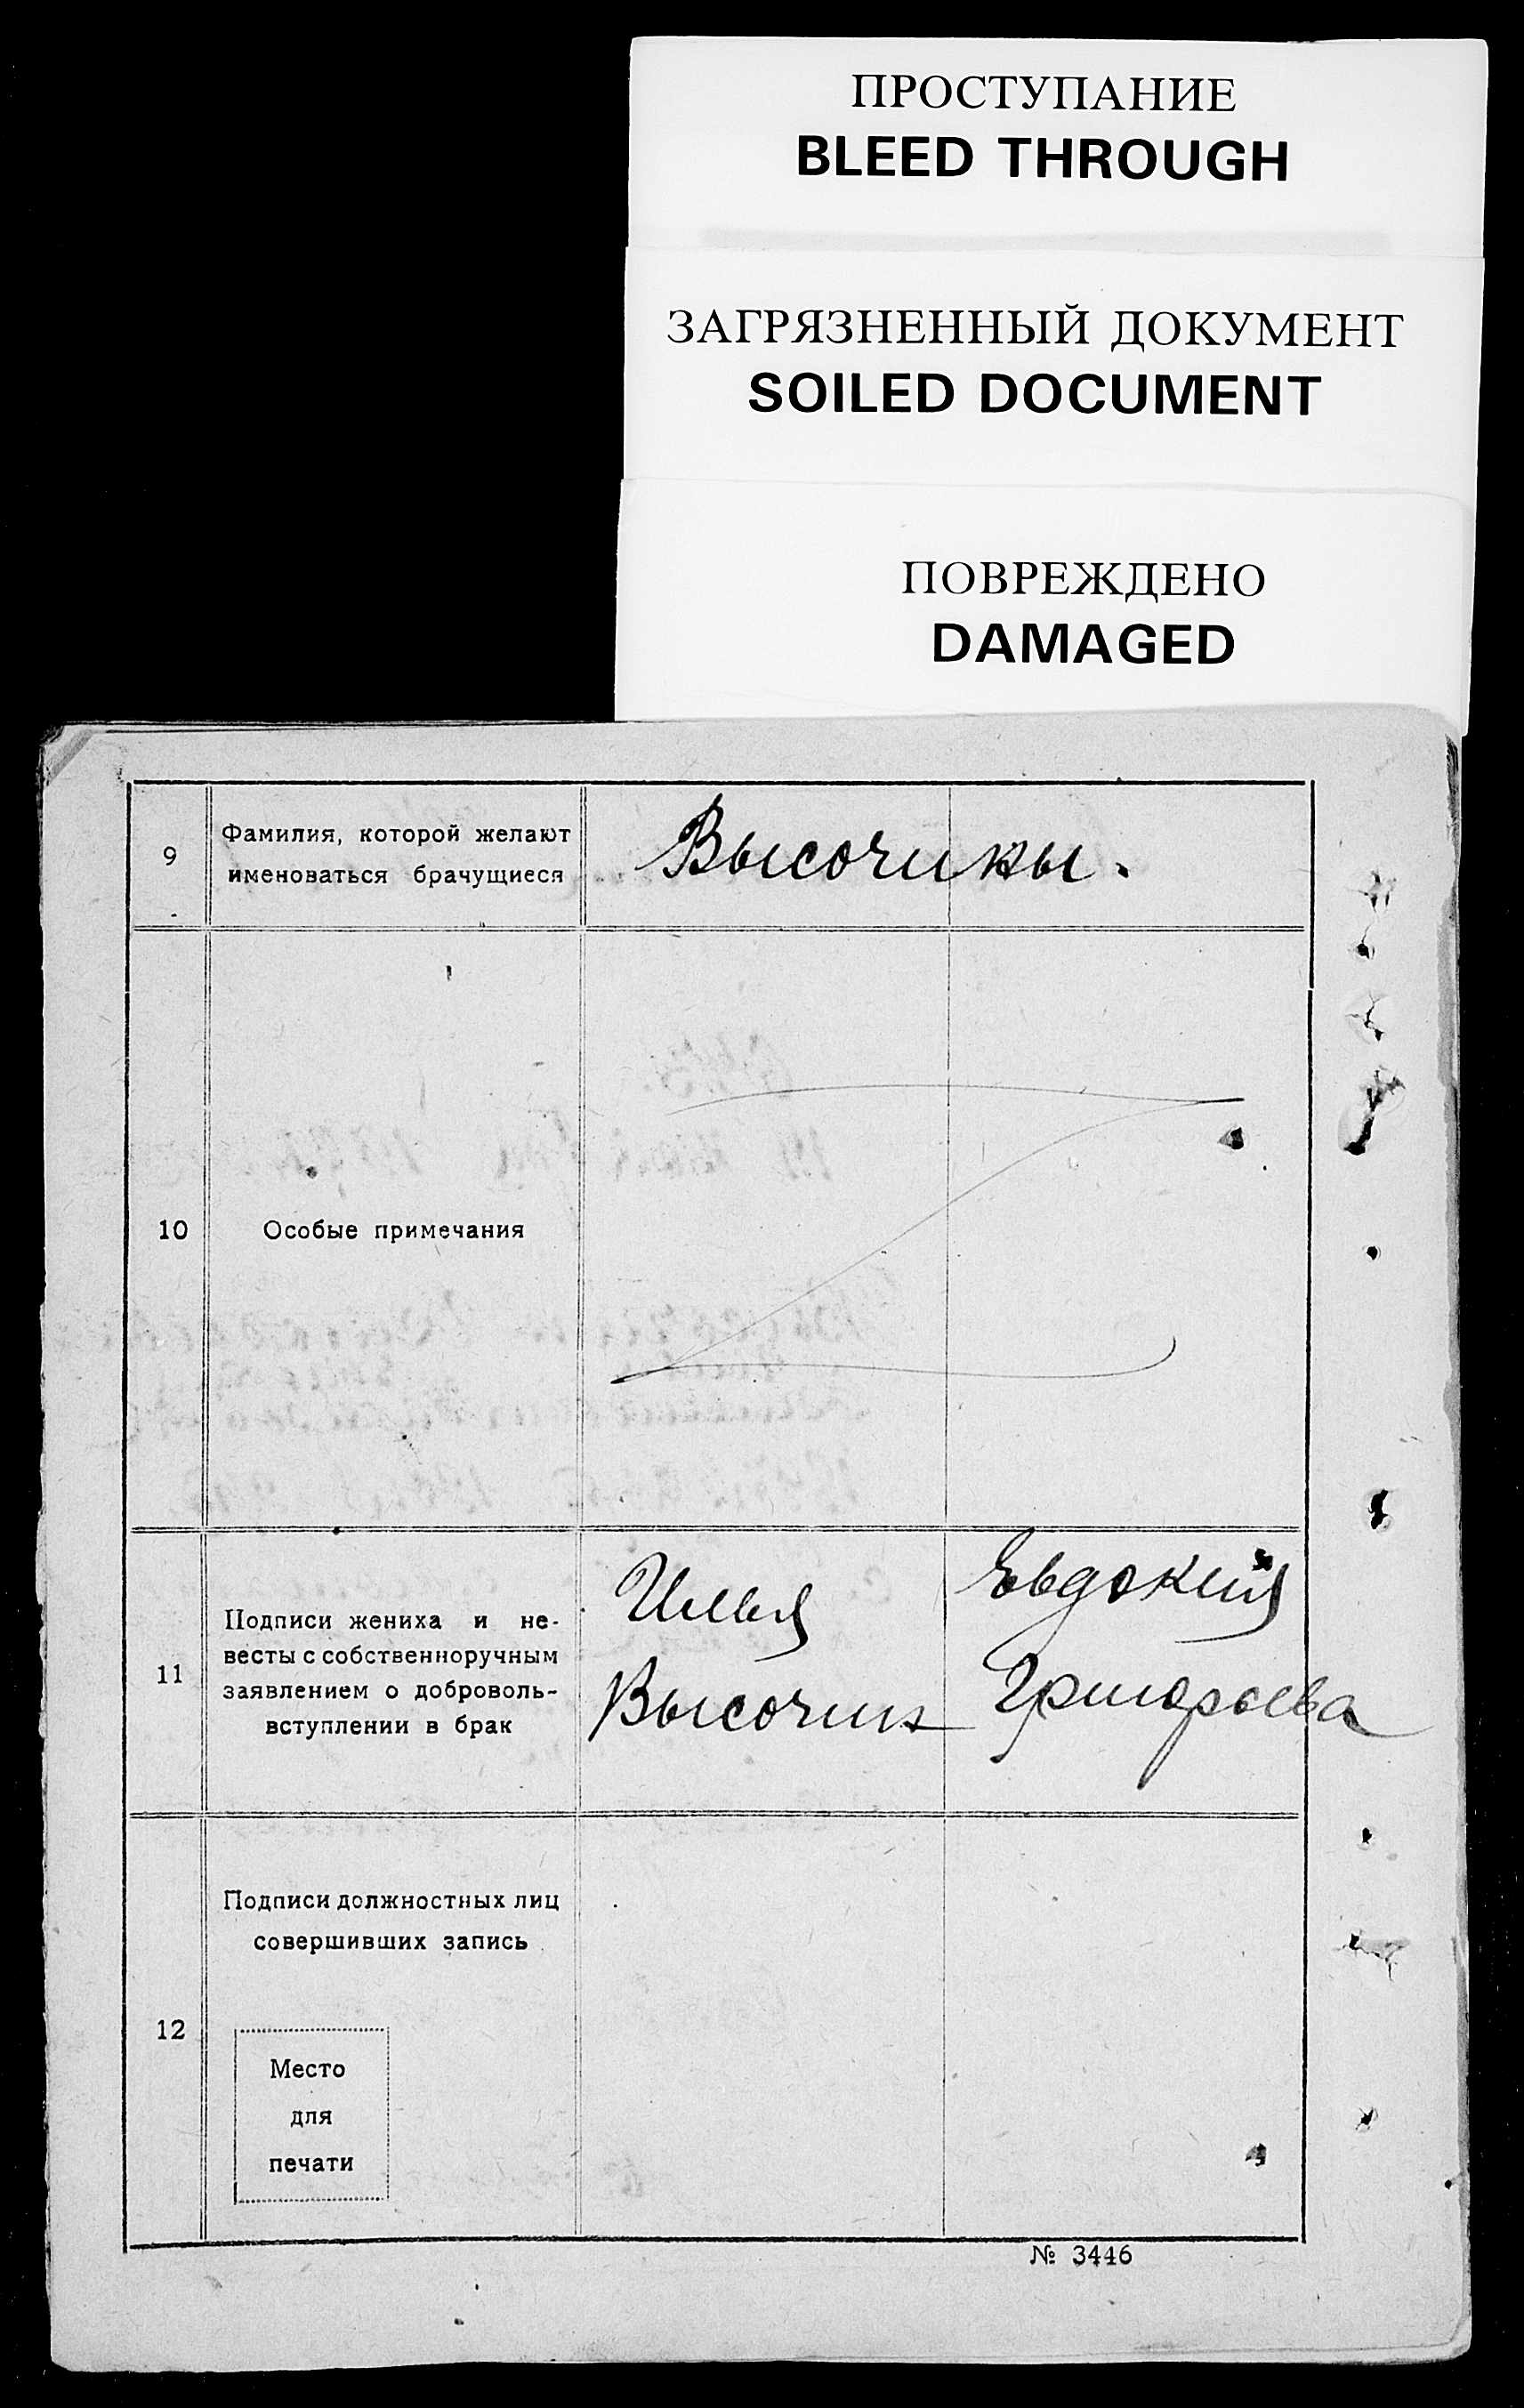 ПРОСТУПАНИЕ
BLEED THROUGH
ЗАГРЯЗНЕННЫЙ ДОКУМЕНТ
SOILED DOCUMENT
ПОВРЕЖДЕНО
DAMAGED
9
Фамилия, которой желают
именоваться брачущиеся
Высочины.
10
Особые примечания
11
Подписи жениха и не-
весты с собственноручным
заявлением о доброволь-
вступлении в брак
Илья
Высочин
Евдокия
Григорьева
12
Подписи должностных лиц
совершивших запись
Место
для
печати
№ 3446